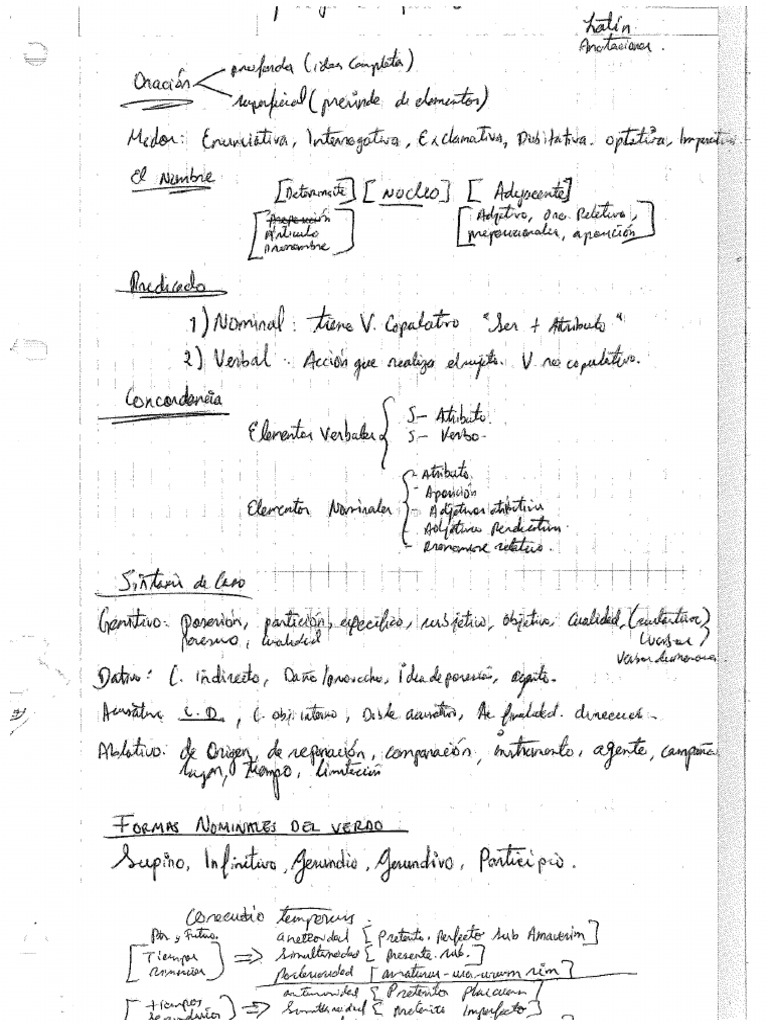 Latín
Anotaciones.
Oración
profunda (idea completa)
superficial (prescinde de elementos)
Modos: Enunciativa, Interrogativa, Exclamativa, Dubitativa. optativa, Imperativa
El Nombre
[Determinante] [NÚCLEO] [Adyacente]
[Preposición
Artículo
Pronombre]
[Adjetivo, Orac. Relativo,
preposicionales, aposición]
Predicado
1) Nominal: tiene V. Copulativo "Ser + Atributo"
2) Verbal. Acción que realiza el sujeto. V no copulativo.
Concordancia
Elementos Verbales
S - Atributo.
S - Verbo.
Elementos Nominales
- Atributo
- Aposición
- Adjetivos atributivo
- Adjetivo Predicativo.
- Pronombre relativo.
Sintaxis de Caso
Genitivo: posesión, partición, específico, subjetivo, objetivo, cualidad, (sustantivos)
cualidad
Dativo: C. indirecto, Daño/provecho, idea de posesión, agente.
Acusativo C.D, C. obj. interno, Doble acusativo, Ac finalidad. dirección.
Ablativo: de Origen, de separación, comparación, instrumento, agente, compañía
lugar, tiempo, limitación
FORMAS NOMINALES DEL VERBO
Supino, Infinitivo, Gerundio, Gerundivo, Participio.
Consecutio temporum.
Pres y Futuro.
[Tiempos
Primarios] ⇒
anterioridad [Pretérito. Perfecto Sub Amaverim]
Simultaneidad [presente sub.]
Posterioridad [amaturus-ura-urum sim]
[tiempos
secundarios] ⇒
anterioridad [Pretérito
Simultaneidad [pretérito Imperfecto]